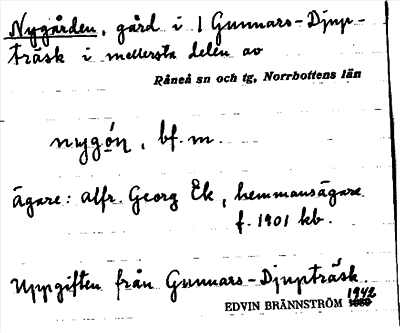 Nygården, gård i 1 Gunnars-Djup-
träsk i mellersta delen av
Råneå sn och tg, Norrbottens län
nygó̱n, bf. m.
ägare: Alfr. Georg Ek, hemmansägare
f. 1901 kb.
Uppgiften från Gunnars-Djupträsk.
EDVIN BRÄNNSTRÖM 1942